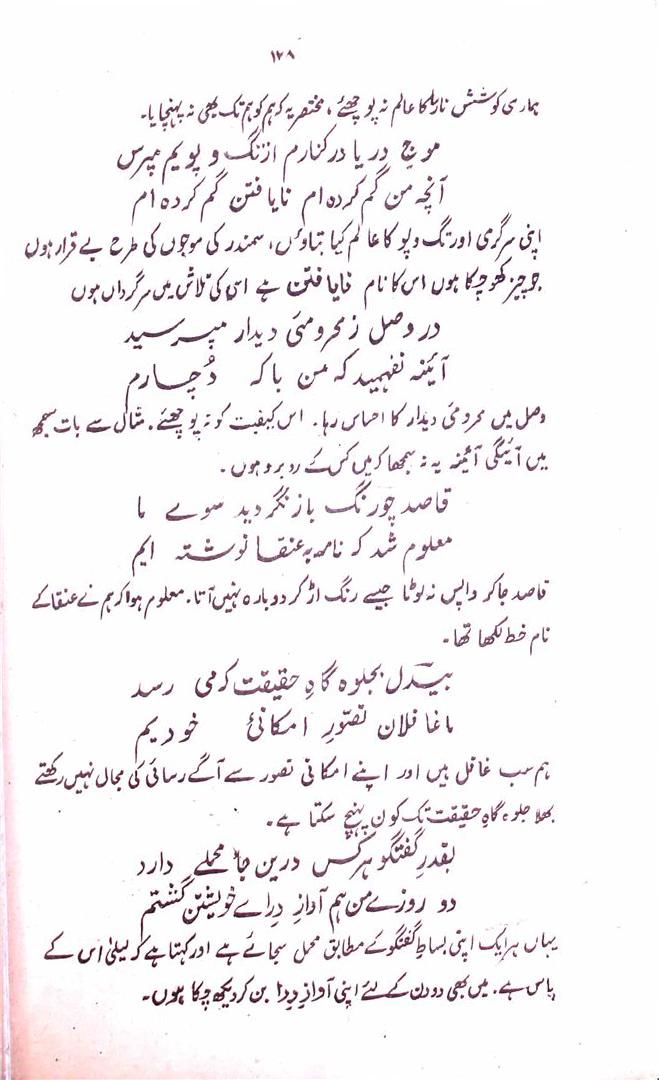 ۱۲۸
ہماری کوشش نارسا کا عالم نہ پوچھئے ، مختصر یہ کہ ہم کو ہم تک بھی نہ پہنچایا۔
موج دریا در کنارم از تگ و پویم مپرس
آنچہ من گم کردہ ام نایافتن گم کردہ ام
اپنی سرگرمی اور تگ و پو کا عالم کیا بتاؤں، سمندر کی موجوں کی طرح بے قرار ہوں
جو چیز کھو چکا ہوں اس کا نام نایافتن ہے اس کی تلاش میں سرگرداں ہوں
در وصل ز محرومئ دیدار مپرسید
آئینہ نفہمید کہ من با کہ دُچارم
وصل میں محرومئ دیدار کا احساس رہا۔ اس کیفیت کو نہ پوچھئے۔ مثال سے بات سمجھ
میں آئیگی آئینہ یہ نہ سمجھا کہ میں کس کے روبرو ہوں۔
قاصد چو رنگ باز نگردید سوے ما
معلوم شد کہ نامہ بہ عنقا نوشتہ ایم
قاصد جا کر واپس نہ لوٹا جیسے رنگ اڑ کر دوبارہ نہیں آتا۔ معلوم ہوا کہ ہم نے عنقا کے
نام خط لکھا تھا۔
بیدل بجلوہ گاہِ حقیقت کہ می رسد
ما غافلان تصوّرِ امکانئ خودیم
ہم سب غافل ہیں اور اپنے امکانی تصور سے آگے رسائی کی مجال نہیں رکھتے
بھلا جلوہ گاہِ حقیقت تک کون پہنچ سکتا ہے۔
بقدرِ گفتگو ہر کس درین جا محملے دارد
دو روزے من ہم آوازِ دراے خویشتن گشتم
یہاں ہر ایک اپنی بساطِ گفتگو کے مطابق محمل سجائے ہے اور کہتا ہے کہ لیلیٰ اس کے
پاس ہے۔ میں بھی دو دن کے لئے اپنی آوازِ درا بن کر دیکھ چکا ہوں۔